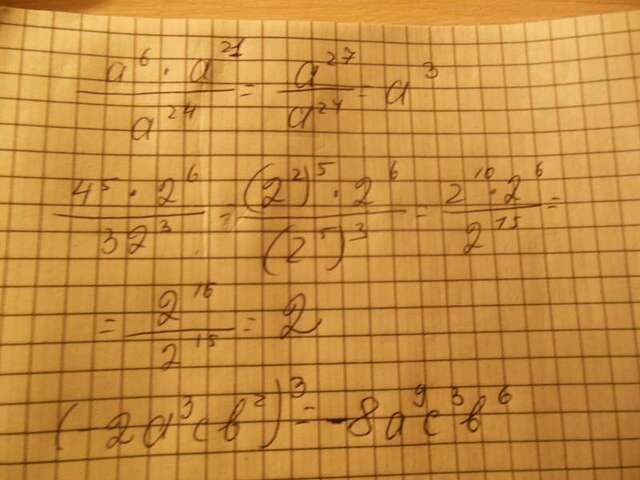 a⁶ · a²¹ / a²⁴ = a²⁷ / a²⁴ = a³
4⁵ · 2⁶ / 32³ = (2²)⁵ · 2⁶ / (2⁵)³ = 2¹⁰ · 2⁶ / 2¹⁵ =
= 2¹⁶ / 2¹⁵ = 2
(-2a³cb²)³ = -8a⁹c³b⁶